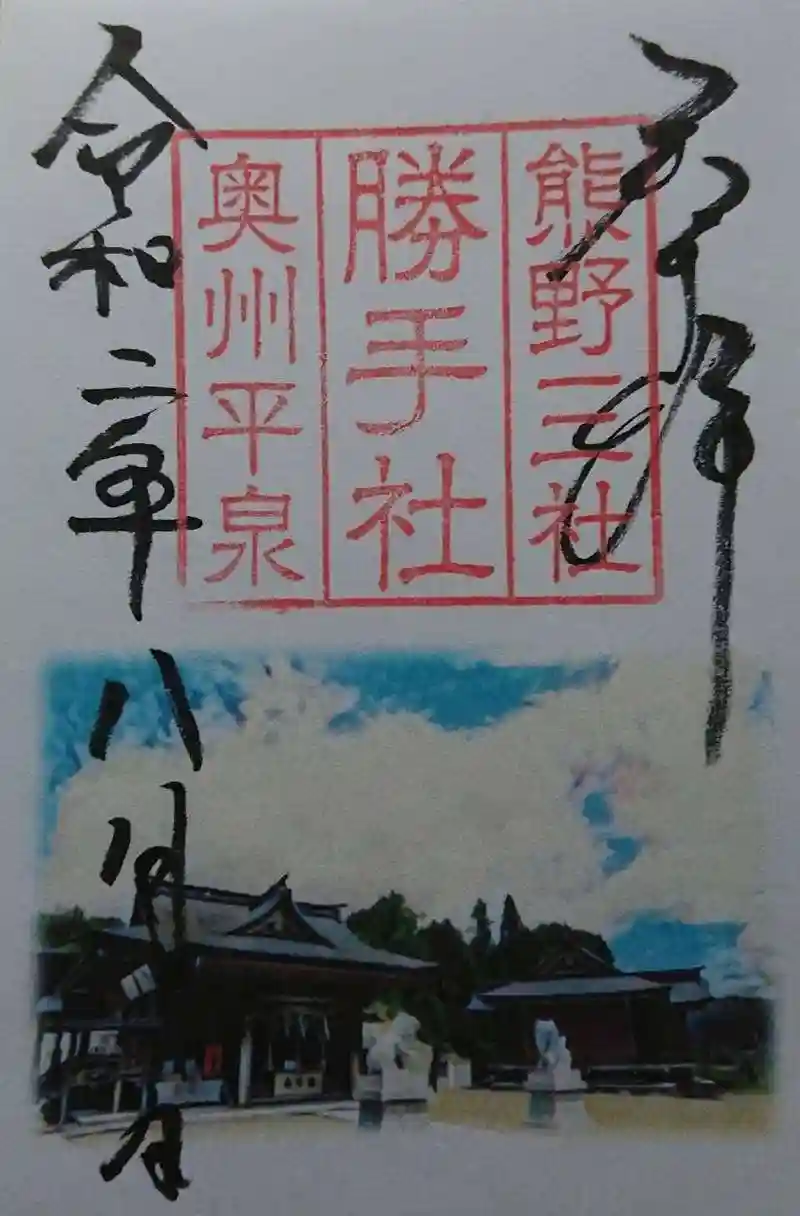 奉拝
熊野三社
勝手社
奥州平泉
令和二年八月日